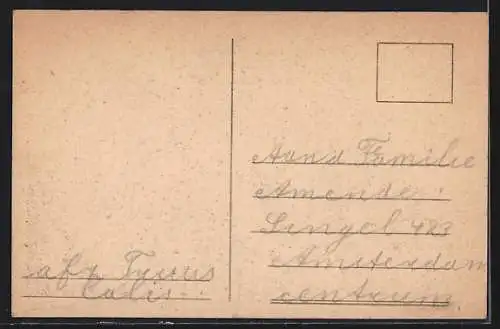 Aan d Familie
Amender
Singel 423
Amsterdam
centrum
afz